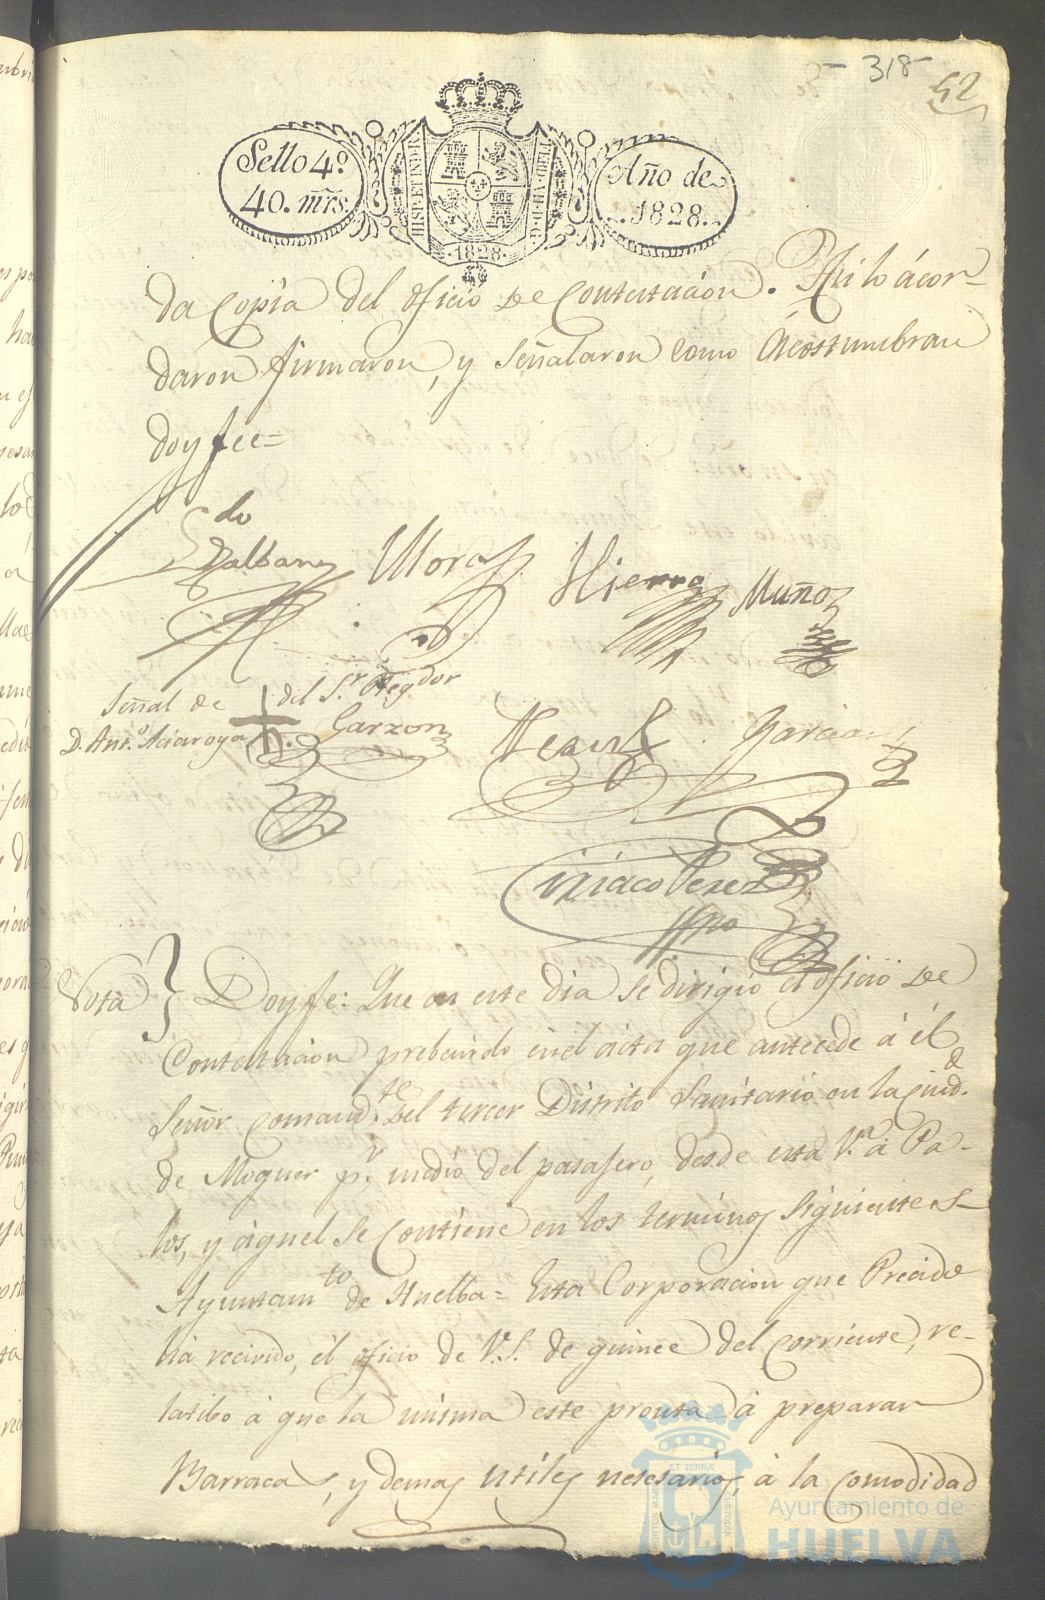 - 318 -
52
Sello 4º.
40. mrs.
HISP. ET IND. R.
FERD. VII. D. G.
·1828·
Año de
1828.
da copia del oficio de Contextacion. Asi lo acor-
daron firmaron, y señalaron como Acostumbran
doy fee=
Mora
Hierro
Muñoz
Señal de
del Sr. Regdor
D. Anto.
Garzon
Garcia
Ciriaco Perez
Nota } Doy fe: Que en este dia se dirigió el oficio de
Contextacion prebenido en el acta que antecede á él
Señor Comandte. del tercer Distrito Sanitario en la Ciudd.
de Moguer pr. medio del pasajero, desde esta Va. á Pa-
los, y aquel se contiene en los terminos siguientes-
Ayuntamto de Huelba = Esta Corporacion que Precido
há recivido, él oficio de V.S. de quince del corriente, re-
latibo á que la misma este pronta á preparar
Barraca, y demas utiles nesesarios, á la comodidad
ET TERRÆ
PORTUS MARIS
CUSTODIA
Ayuntamiento de
HUELVA